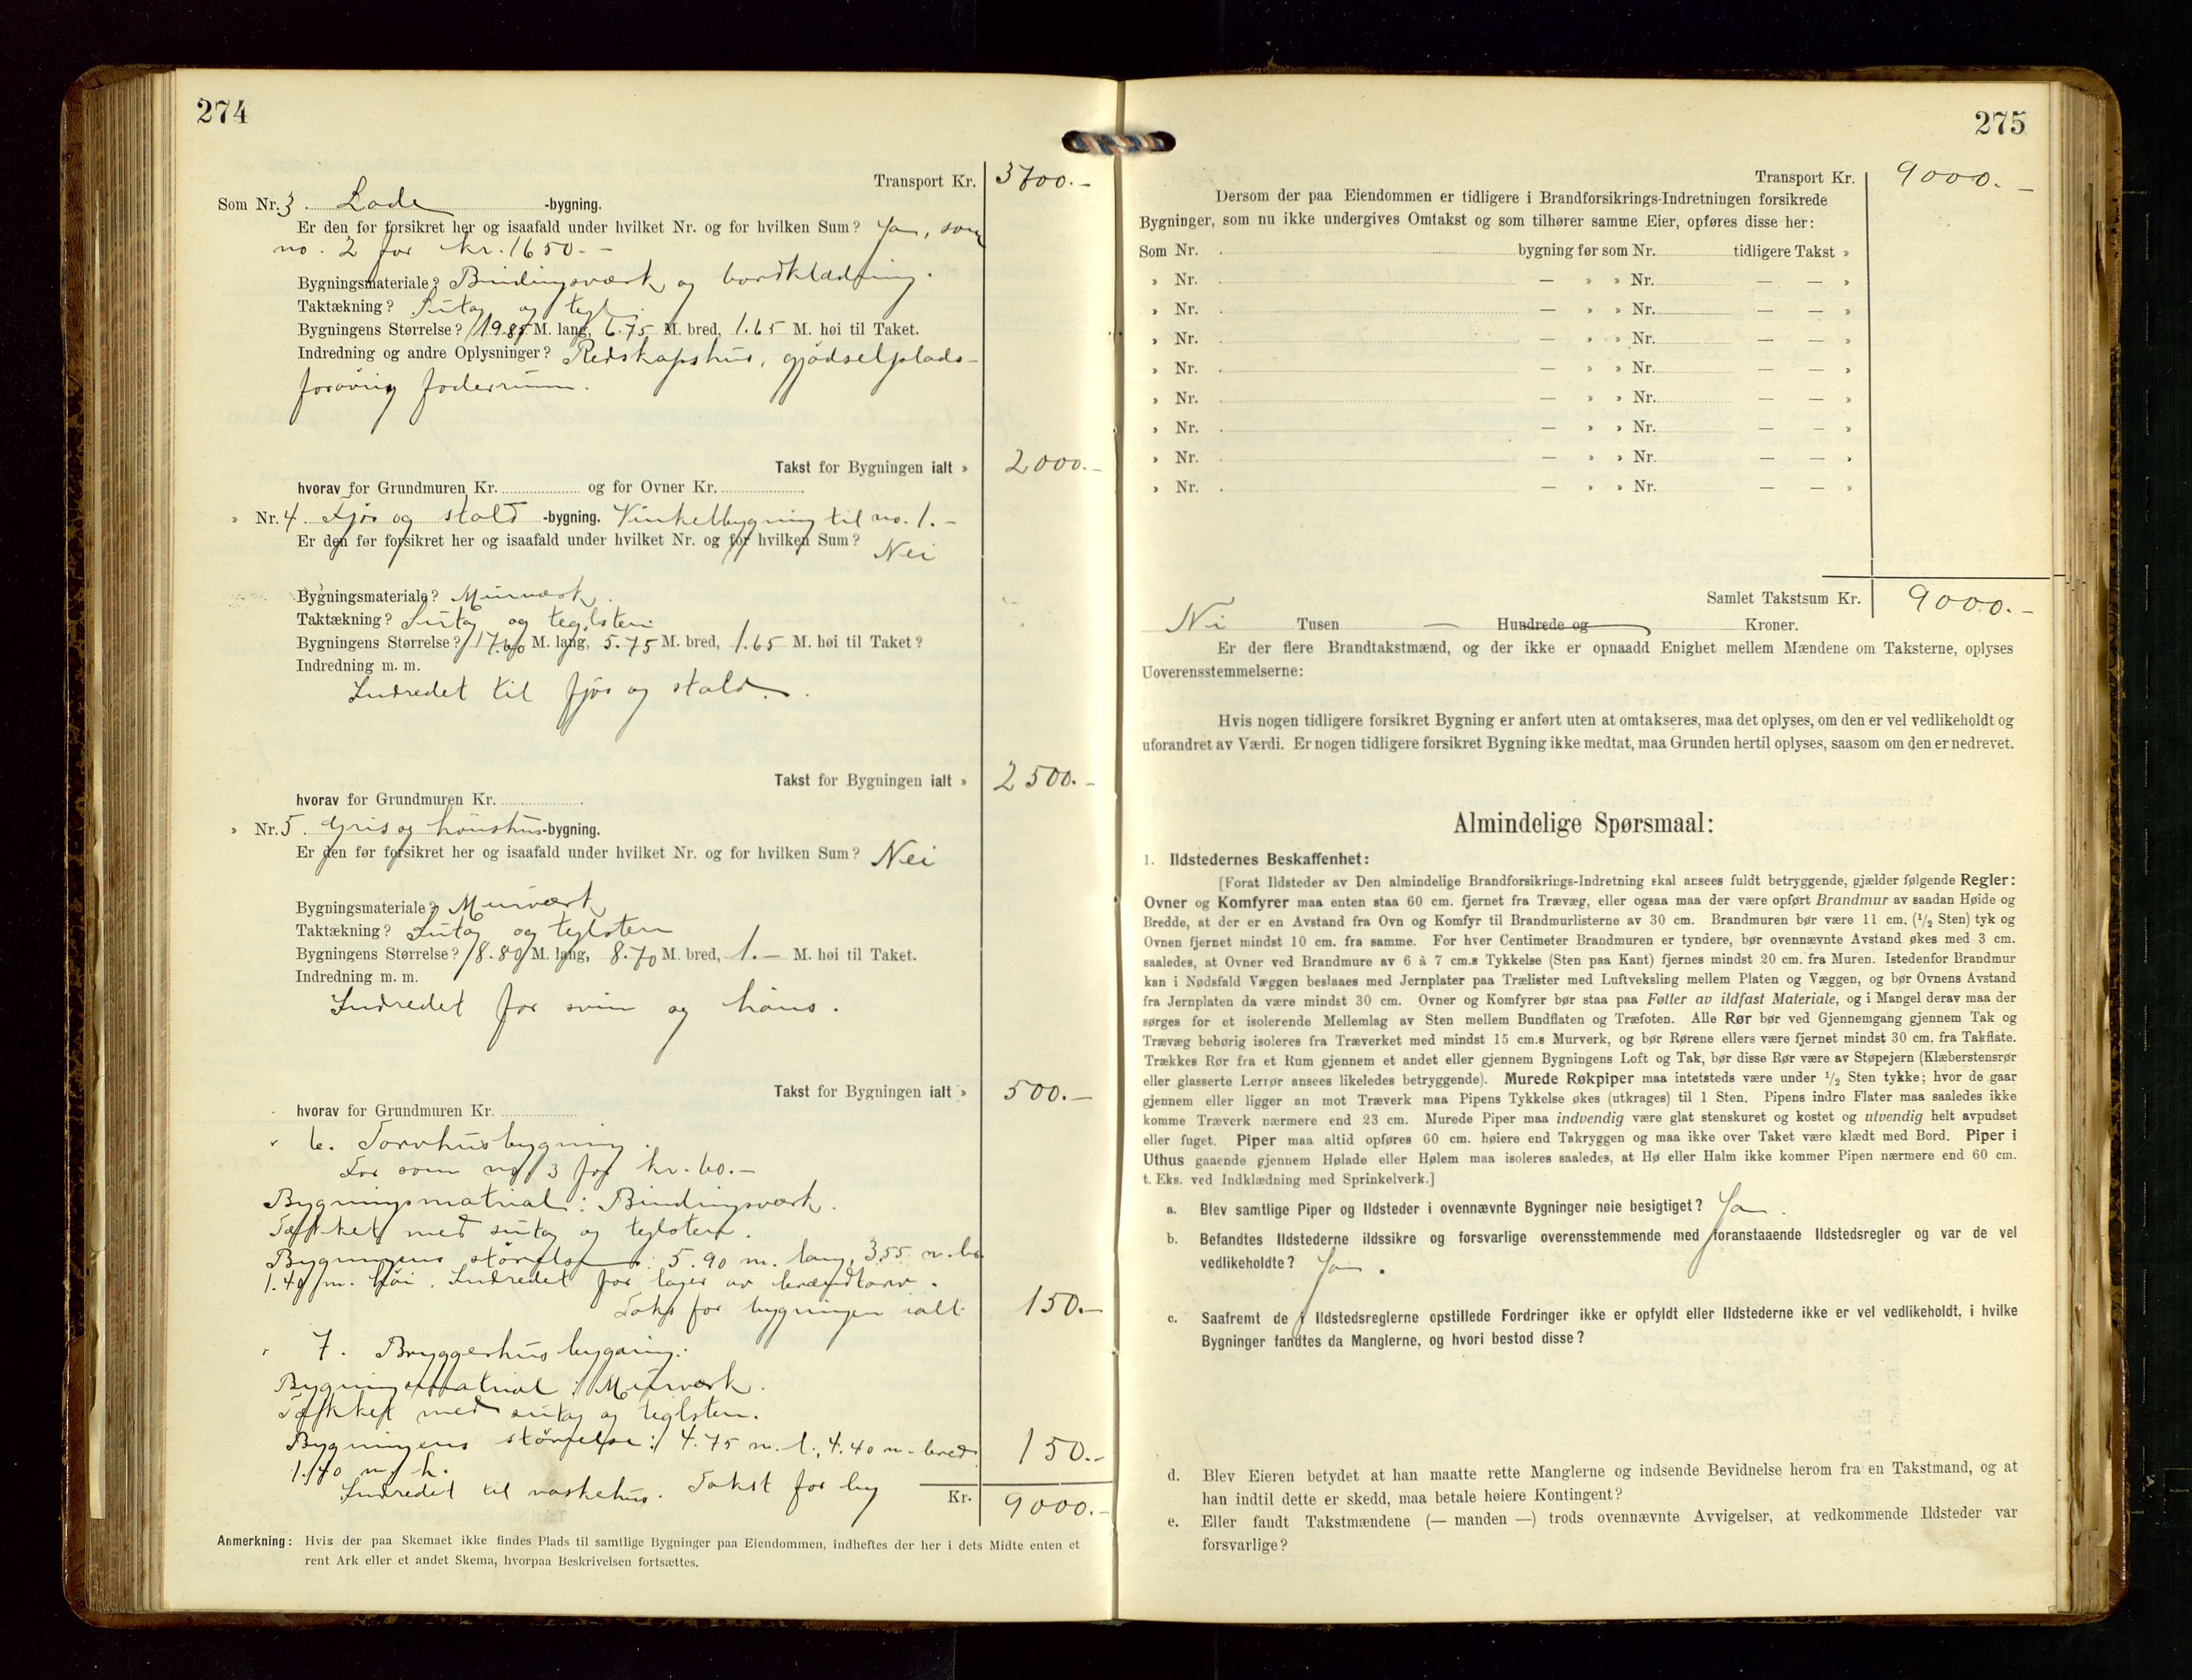 274
Transport Kr. 3700.-
Som Nr. 3. Lade -bygning.
Er den før forsikret her og isaafald under hvilket Nr. og for hvilken Sum? Ja, som
no. 2 for kr. 1650.-
Bygningsmateriale? Bindingsværk og bordklædning.
Taktækning? Sutag og tegl.
Bygningens Størrelse? 19.85 M. lang, 6.75 M. bred, 1.65 M. høi til Taket.
Indredning og andre Oplysninger? Redskapshus, gjødselplads-
forøvrig foderrum.
Takst for Bygningen ialt » 2000.-
hvorav for Grundmuren Kr. og for Ovner Kr.
» Nr. 4. Fjøs og stald -bygning. Vinkelbygning til no. 1.-
Er den før forsikret her og isaafald under hvilket Nr. og for hvilken Sum? Nei
Bygningsmateriale? Murværk.
Taktækning? Sutag og teglsten
Bygningens Størrelse? 17.60 M. lang, 5.75 M. bred, 1.65 M. høi til Taket?
Indredning m. m.
Indredet til fjøs og stald.
Takst for Bygningen ialt » 2500.-
hvorav for Grundmuren Kr.
» Nr. 5. Gris og hønshus -bygning.
Er den før forsikret her og isaafald under hvilket Nr. og for hvilken Sum? Nei
Bygningsmateriale? Murværk
Taktækning? Sutag og teglsten
Bygningens Størrelse? 8.80 M. lang, 8.70 M. bred, 1.- M. høi til Taket.
Indredning m. m.
Indredet for svin og høns.
Takst for Bygningen ialt » 500.-
hvorav for Grundmuren Kr.
" 6. Torvhusbygning.
Før som no 3 for kr. 60.-
Bygningsmatrial: Bindingsværk.
Tækket med sutag og teglsten.
Bygningens størrelse: 5.90 m. lang, 3.55 m. br
1.40 m. høi. Indredet for lager av brændtorv.
Takst for bygningen ialt 150.-
" 7. Bryggerhusbygning.
Bygningsmatrial: Murværk.
Tækket med sutag og teglsten.
Bygningens størrelse: 4.75 m. l., 4.40 m. bred 150.-
1.40 m. h.
Indredet til vaskehus. Takst for byg Kr. 9000.-
Anmerkning: Hvis der paa Skemaet ikke findes Plads til samtlige Bygninger paa Eiendommen, indheftes der her i dets Midte enten et
rent Ark eller et andet Skema, hvorpaa Beskrivelsen fortsættes.
275
Transport Kr. 9000.-
Dersom der paa Eiendommen er tidligere i Brandforsikrings-Indretningen forsikrede
Bygninger, som nu ikke undergives Omtakst og som tilhører samme Eier, opføres disse her:
Som Nr. bygning før som Nr. tidligere Takst »
» Nr. — » » Nr. — — »
» Nr. — » » Nr. — — »
» Nr. — » » Nr. — — »
» Nr. — » » Nr. — — »
» Nr. — » » Nr. — — »
» Nr. — » » Nr. — — »
» Nr. — » » Nr. — — »
» Nr. — » » Nr. — — »
Samlet Takstsum Kr. 9000.-
Ni Tusen — Hundrede og Kroner.
Er der flere Brandtakstmænd, og der ikke er opnaadd Enighet mellem Mændene om Taksterne, oplyses
Uoverensstemmelserne:
Hvis nogen tidligere forsikret Bygning er anført uten at omtakseres, maa det oplyses, om den er vel vedlikeholdt og
uforandret av Værdi. Er nogen tidligere forsikret Bygning ikke medtat, maa Grunden hertil oplyses, saasom om den er nedrevet.
Almindelige Spørsmaal:
1. Ildstedernes Beskaffenhet:
[Forat Ildsteder av Den almindelige Brandforsikrings-Indretning skal ansees fuldt betryggende, gjælder følgende Regler:
Ovner og Komfyrer maa enten staa 60 cm. fjernet fra Trævæg, eller ogsaa maa der være opført Brandmur av saadan Høide og
Bredde, at der er en Avstand fra Ovn og Komfyr til Brandmurlisterne av 30 cm. Brandmuren bør være 11 cm. (1/2 Sten) tyk og
Ovnen fjernet mindst 10 cm. fra samme. For hver Centimeter Brandmuren er tyndere, bør ovennævnte Avstand økes med 3 cm.
saaledes, at Ovner ved Brandmure av 6 à 7 cm.s Tykkelse (Sten paa Kant) fjernes mindst 20 cm. fra Muren. Istedenfor Brandmur
kan i Nødsfald Væggen beslaaes med Jernplater paa Trælister med Luftveksling mellem Platen og Væggen, og bør Ovnens Avstand
fra Jernplaten da være mindst 30 cm. Ovner og Komfyrer bør staa paa Føtter av ildfast Materiale, og i Mangel derav maa der
sørges for et isolerende Mellemlag av Sten mellem Bundflaten og Træfoten. Alle Rør bør ved Gjennemgang gjennem Tak og
Trævæg behørig isoleres fra Træverket med mindst 15 cm.s Murverk, og bør Rørene ellers være fjernet mindst 30 cm. fra Takflate.
Trækkes Rør fra et Rum gjennem et andet eller gjennem Bygningens Loft og Tak, bør disse Rør være av Støpejern (Klæberstensrør
eller glasserte Lerrør ansees likeledes betryggende). Murede Røkpiper maa intetsteds være under 1/2 Sten tykke; hvor de gaar
gjennem eller ligger an mot Træverk maa Pipens Tykkelse økes (utkrages) til 1 Sten. Pipens indre Flater maa saaledes ikke
komme Træverk nærmere end 23 cm. Murede Piper maa indvendig være glat stenskuret og kostet og utvendig helt avpudset
eller fuget. Piper maa altid opføres 60 cm. høiere end Takryggen og maa ikke over Taket være klædt med Bord. Piper i
Uthus gaaende gjennem Hølade eller Hølem maa isoleres saaledes, at Hø eller Halm ikke kommer Pipen nærmere end 60 cm.
t. Eks. ved Indklædning med Sprinkelverk.]
a. Blev samtlige Piper og Ildsteder i ovennævnte Bygninger nøie besigtiget? Ja.
b. Befandtes Ildstederne ildssikre og forsvarlige overensstemmende med foranstaaende Ildstedsregler og var de vel
vedlikeholdte? Ja.
c. Saafremt de i Ildstedsreglerne opstillede Fordringer ikke er opfyldt eller Ildstederne ikke er vel vedlikeholdt, i hvilke
Bygninger fandtes da Manglerne, og hvori bestod disse?
d. Blev Eieren betydet at han maatte rette Manglerne og indsende Bevidnelse herom fra en Takstmand, og at
han indtil dette er skedd, maa betale høiere Kontingent?
e. Eller fandt Takstmændene (— manden —) trods ovennævnte Avvigelser, at vedkommende Ildsteder var
forsvarlige?